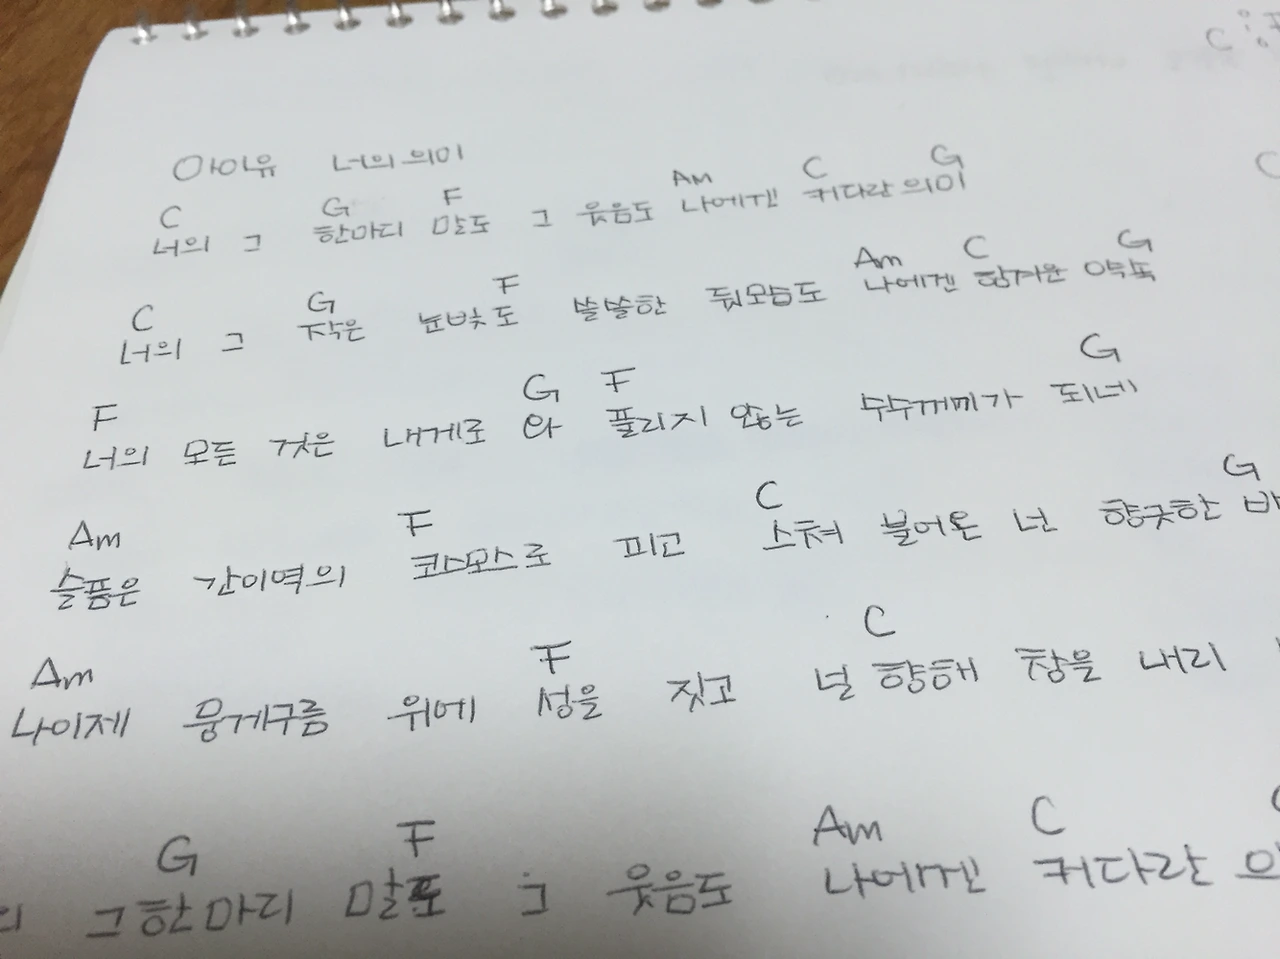 아이유 너의 의미
C G F Am C G
너의 그 한마디 말도 그 웃음도 나에겐 커다란 의미
C G F Am C G
너의 그 작은 눈빛도 쓸쓸한 뒷모습도 나에겐 힘겨운 약속
F G F G
너의 모든 것은 내게로 와 풀리지 않는 수수께끼가 되네
Am F C G
슬픔은 간이역의 코스모스로 피고 스쳐 불어온 넌 향긋한 바
Am F C
나 이제 뭉게구름 위에 성을 짓고 널 향해 창을 내리
G F Am C
그 한마디 말도 그 웃음도 나에겐 커다란 의